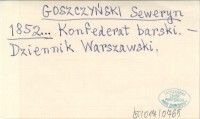 GOSZCZYŃSKI Seweryn
1852... Konfederat barski. –
Dziennik Warszawski.